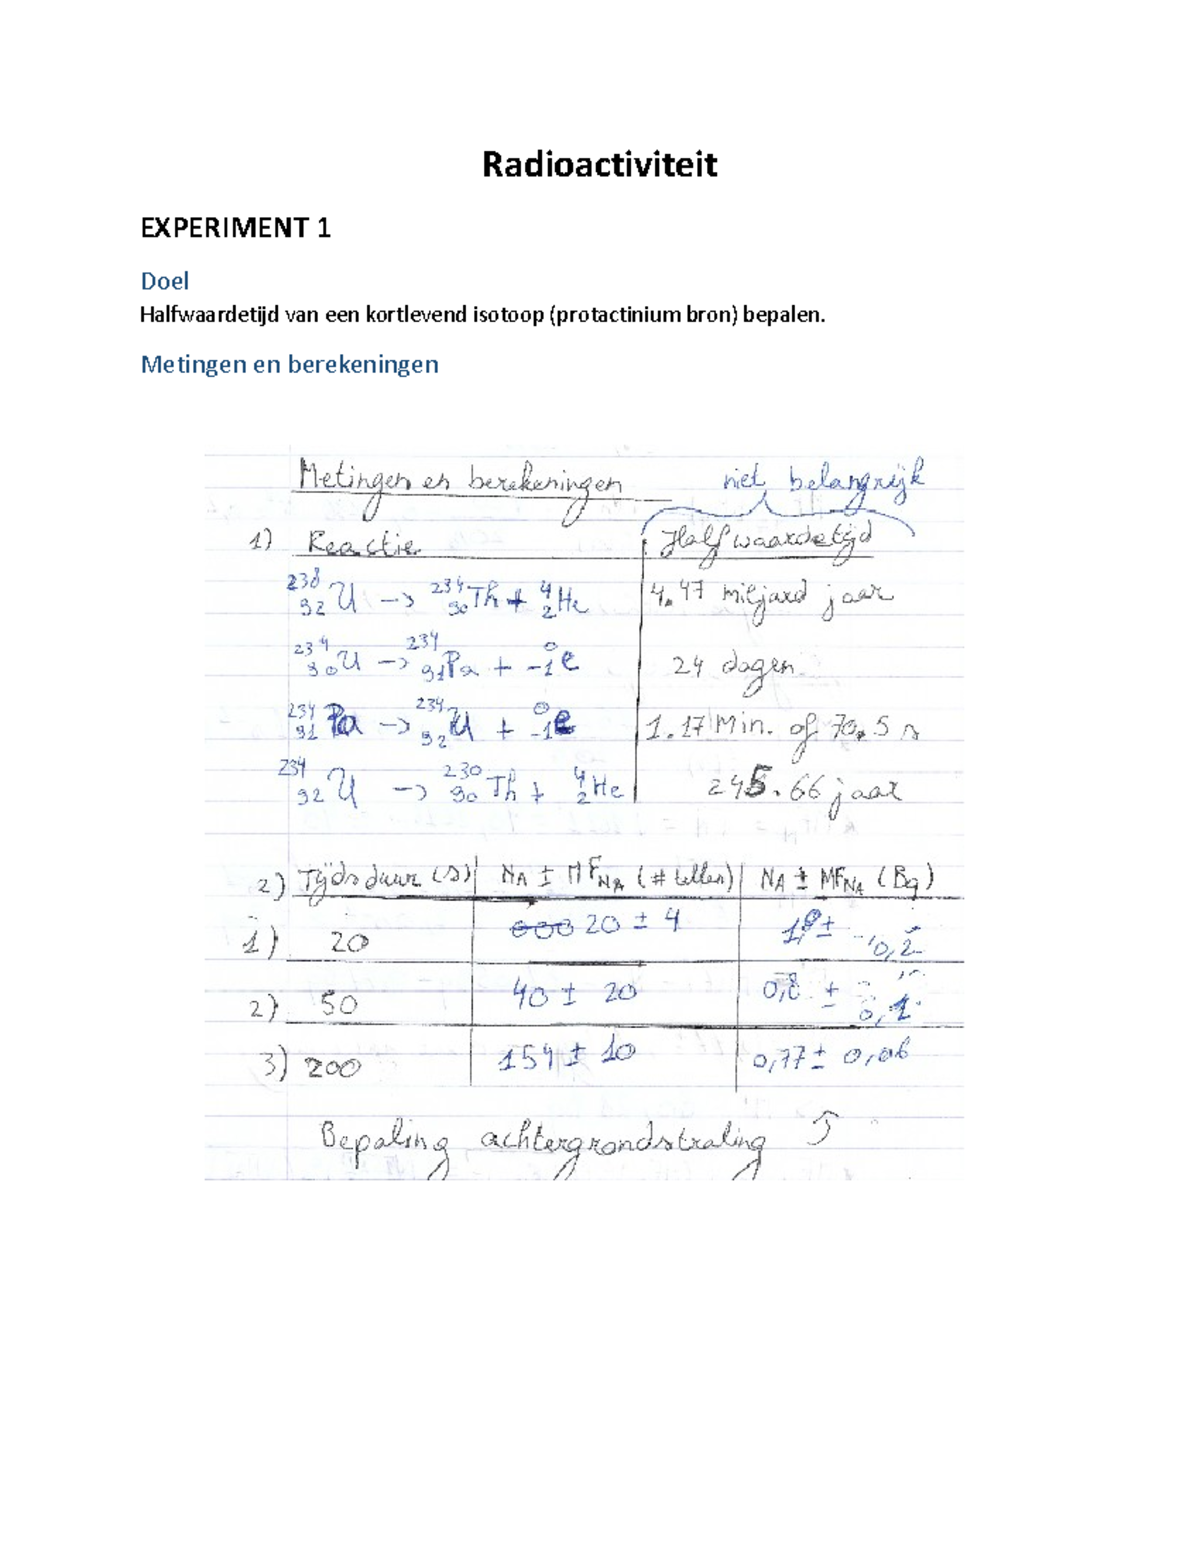 Radioactiviteit
EXPERIMENT 1
Doel
Halfwaardetijd van een kortlevend isotoop (protactinium bron) bepalen.
Metingen en berekeningen
Metingen en berekeningen niet belangrijk
1) Reactie Halfwaardetijd
²³⁸₉₂U -> ²³⁴₉₀Th + ⁴₂He 4.47 miljard jaar
²³⁴₉₀U -> ²³⁴₉₁Pa + ⁰₋₁e 24 dagen
²³⁴₉₁Pa -> ²³⁴₉₂U + ⁰₋₁e 1.17 Min. of 70.5 s
²³⁴₉₂U -> ²³⁰₉₀Th + ⁴₂He 245.66 jaar
2) Tijdsduur (s) NA ± MF NA (# tellen) NA ± MF NA (Bq)
1) 20 20 ± 4 1,0 ± 0,2
2) 50 40 ± 20 0,8 ± 0,1
3) 200 154 ± 10 0,77 ± 0,06
Bepaling achtergrondstraling